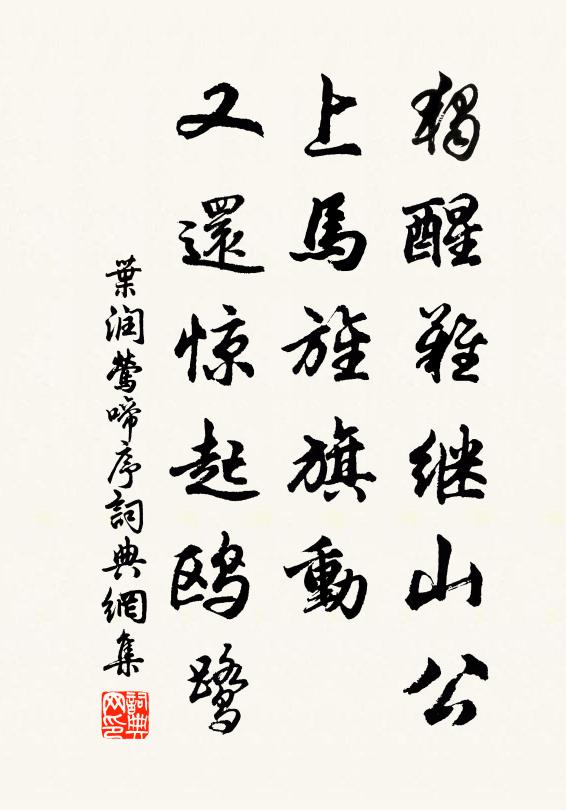 獨醒難继山公
上馬旌旗動
又還惊起鸥鹭
葉润鶯啼序詞典網集
詞典网印